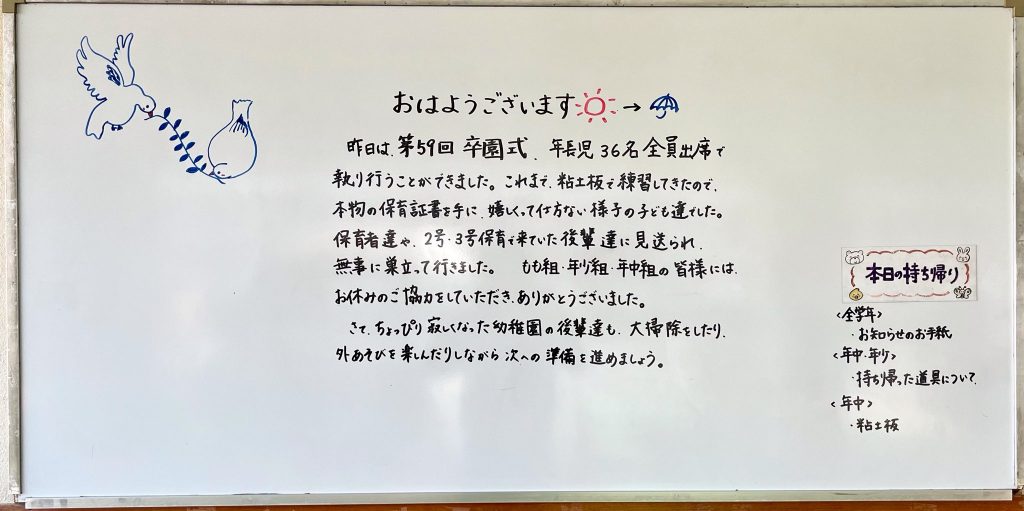 おはようございます → 
昨日は、第59回 卒園式、年長児 36名 全員出席で
執り行うことができました。これまで、粘土板で練習してきたので、
本物の保育証書を手に、嬉しくって仕方ない様子の子ども達でした。
保育者達や、2号・3号保育で来ていた後輩達に見送られ、
無事に巣立って行きました。 もも組・年少組・年中組の皆様には、
お休みのご協力をしていただき、ありがとうございました。
さて、ちょっぴり寂しくなった幼稚園の後輩達も、大掃除をしたり、
外あそびを楽しんだりしながら次への準備を進めましょう。
本日の持ち帰り
<全学年>
・お知らせのお手紙
<年中・年少>
・持ち帰った道具について
<年中>
・粘土板